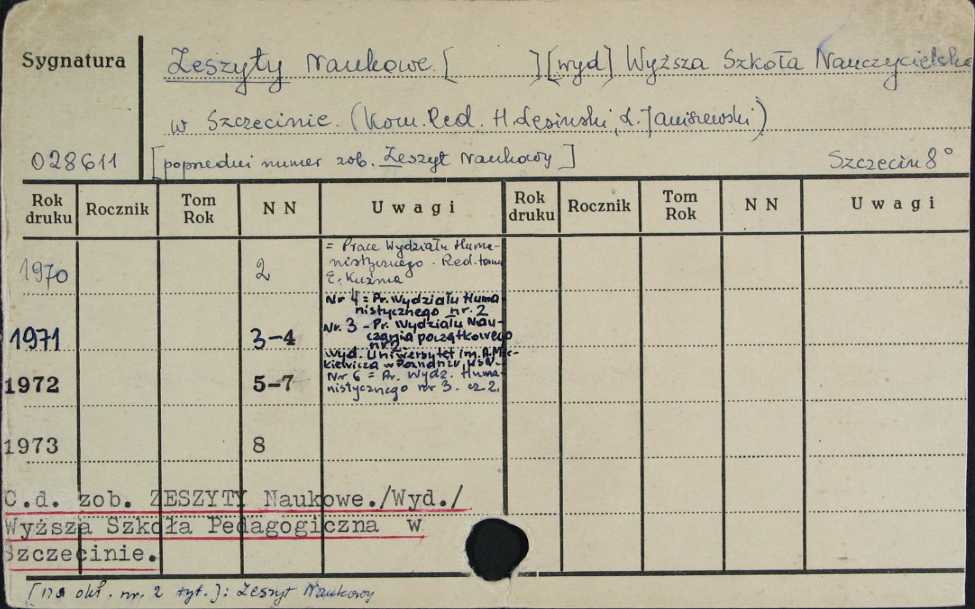 Sygnatura
Zeszyty Naukowe. [ ] [wyd] Wyższa Szkoła Nauczycielska
w Szczecinie. (Kom. Red. H. Lesiński, L. Janiszewski)
028611
[poprzedni numer zob. Zeszyt Naukowy]
Szczecin 8°
Rok druku Rocznik Tom Rok NN Uwagi Rok druku Rocznik Tom Rok NN Uwagi
1970 2
= Prace Wydziału Huma-
nistycznego. Red. tomu
E. Kuźma
Nr 4 = Pr. Wydziału Huma-
nistycznego nr. 2
1971 3-4
Nr. 3 - Pr. Wydziału Nau-
czania początkowego
nr
Wyd. Uniwersytet im. A. Mic-
kiewicza w Poznaniu,
1972 5-7
Nr 6 = Pr. Wydz. Huma-
nistycznego nr 3. cz 2.
1973 8
C.d. zob. ZESZYTY Naukowe./Wyd./
Wyższa Szkoła Pedagogiczna w
Szczecinie.
[na okł. nr. 2 tyt.]: Zeszyt Naukowy